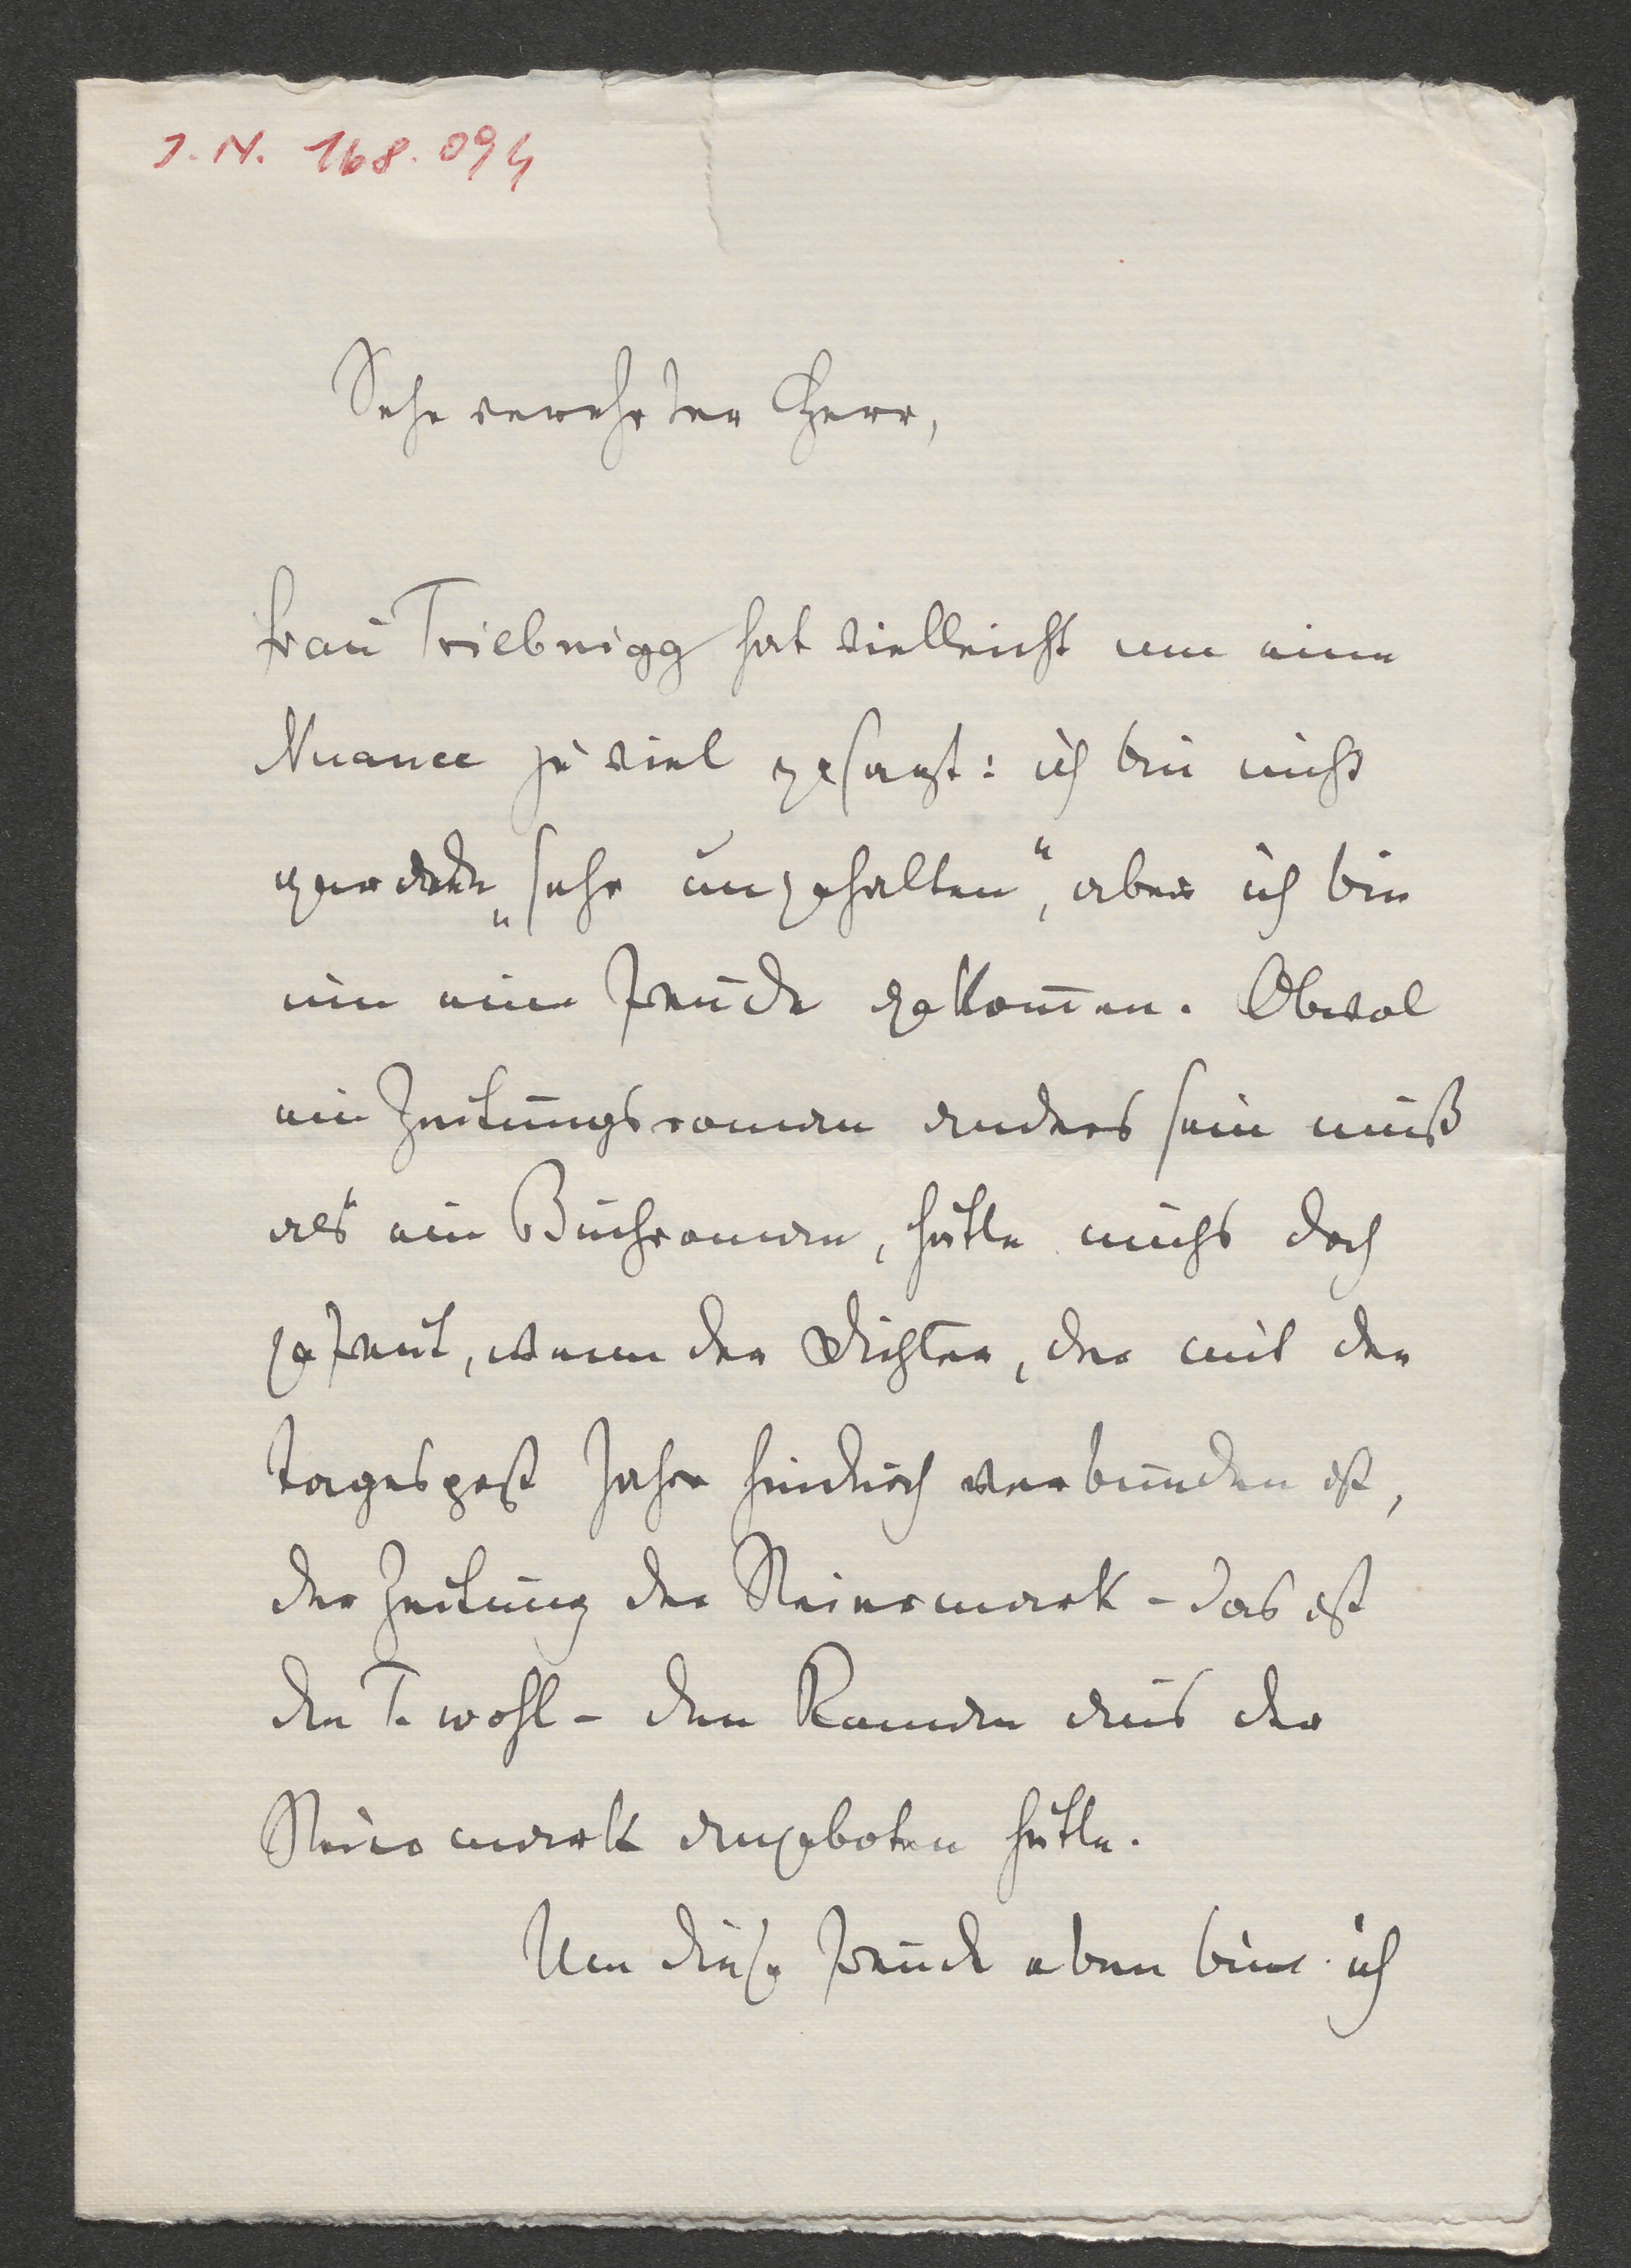 J. N. 168.094
Sehr verehrter Herr,
Frau Triebnigg hat vielleicht um eine
Nuance zu viel gesagt: ich bin nicht
gerade „sehr ungehalten“, aber ich bin
um eine Freude gekom̄en. Obwol
ein Zeitungsroman anders sein muß
als ein Buchroman, hätte michs doch
gefreut, wenn der Dichter, der mit der
Tagespost Jahre hindurch verbunden ist,
der Zeitung der Steiermark - das ist
die T. wohl - den Roman aus der
Steiermark angeboten hätte.
Um diese Freude eben bin ich